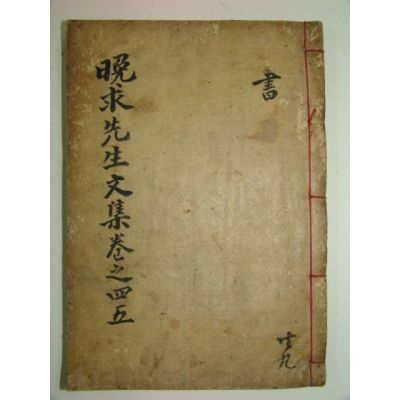 書
共九
晚求先生文集卷之四五